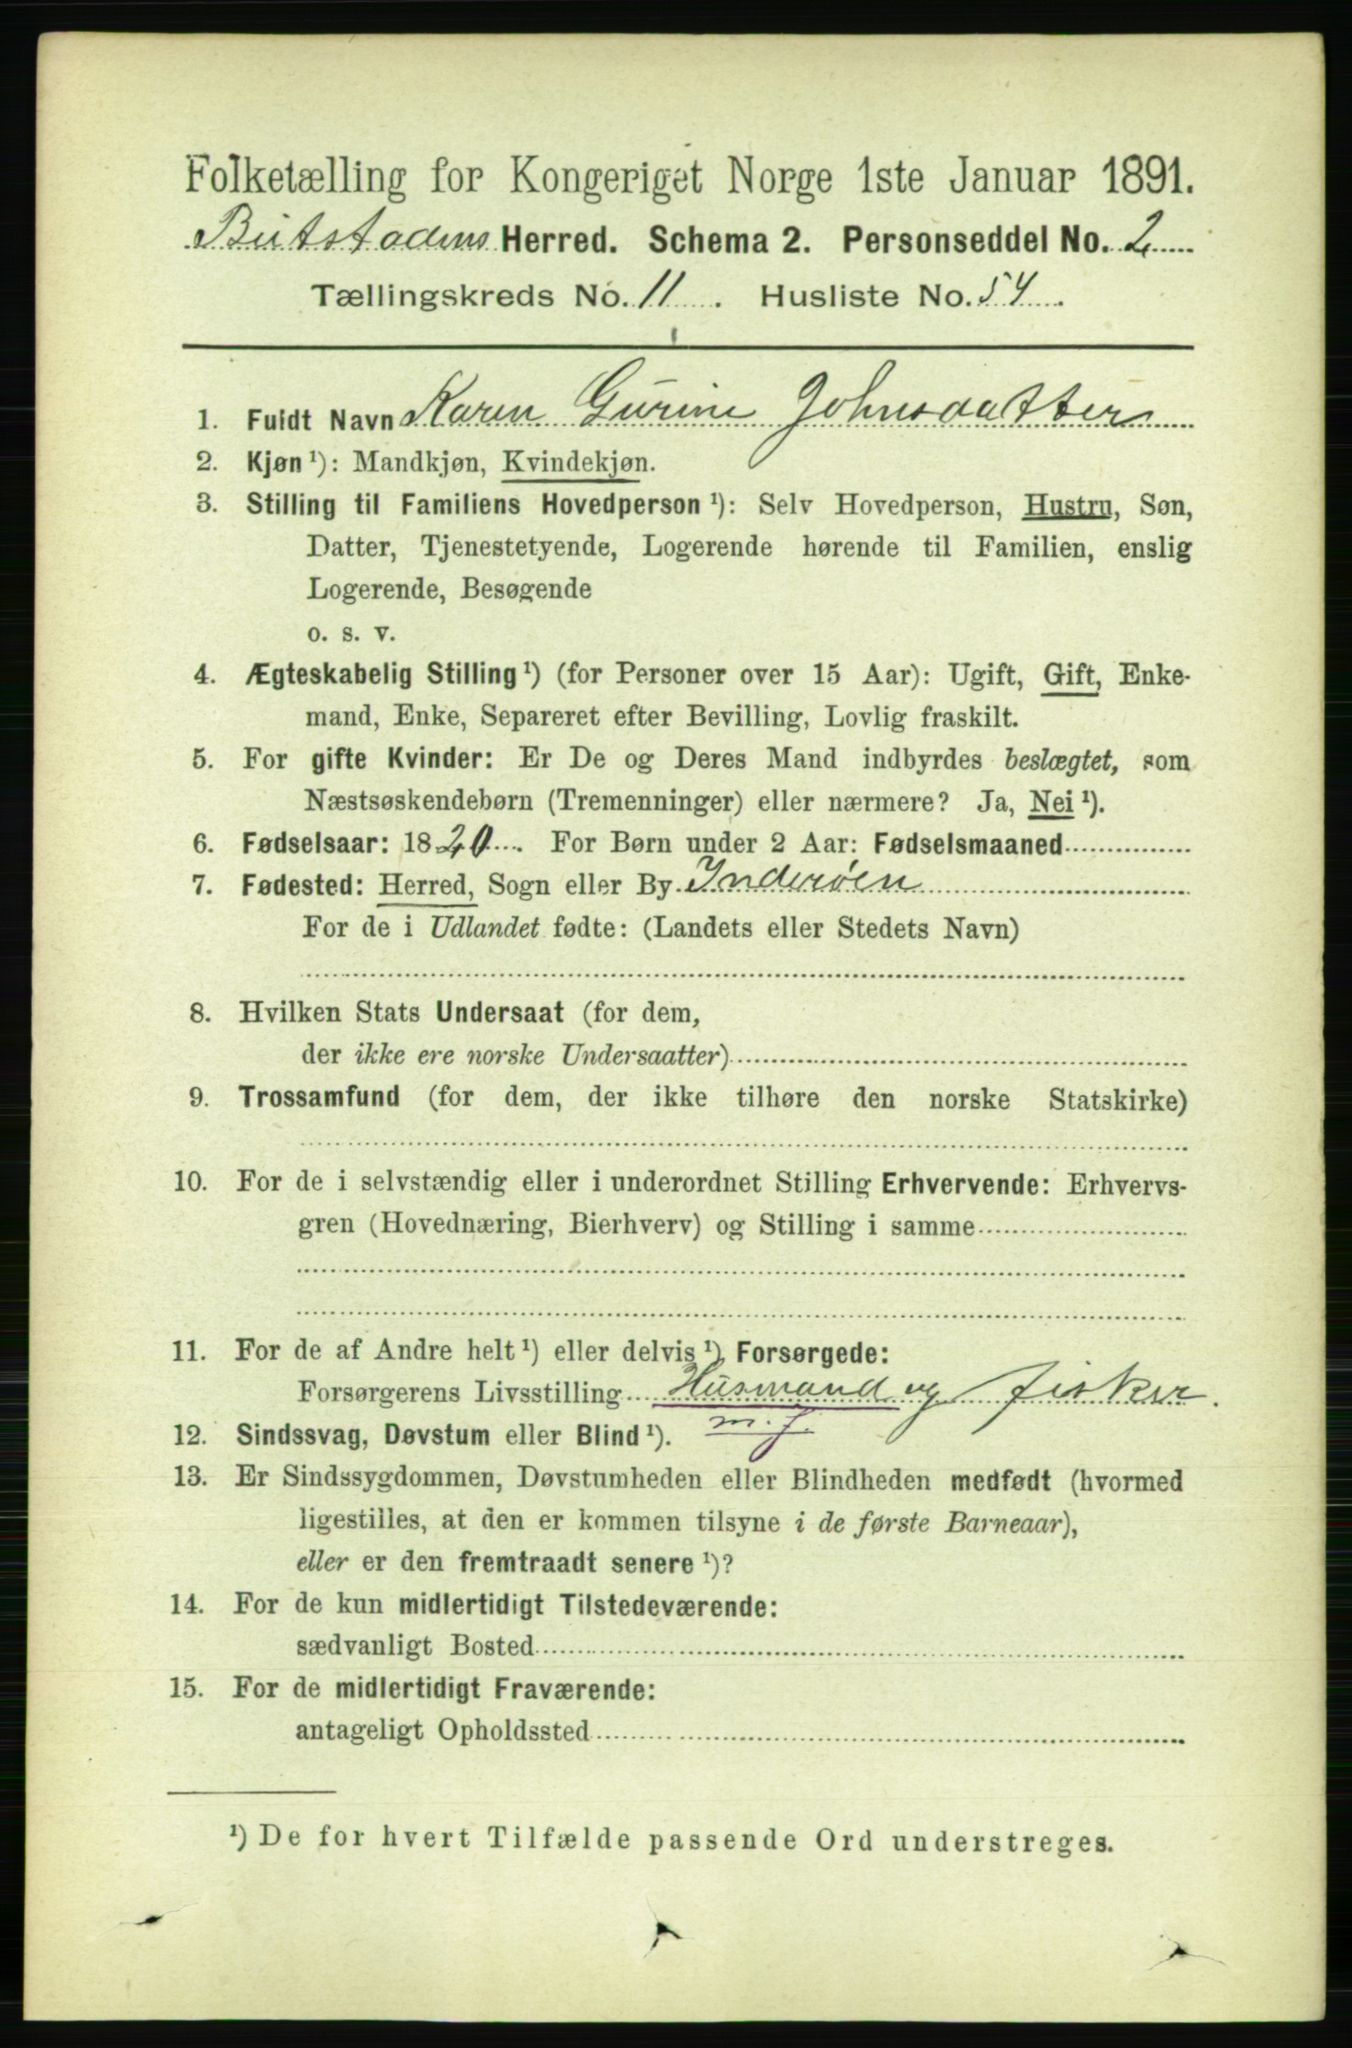 Folketælling for Kongeriget Norge 1ste Januar 1891.
Beitstadens Herred. Schema 2. Personseddel No. 2
Tællingskreds No. 11. Husliste No. 54.
1. Fuldt Navn Karen Gurine Johnsdatter
2. Kjøn ¹): Mandkjøn, Kvindekjøn.
3. Stilling til Familiens Hovedperson ¹): Selv Hovedperson, Hustru, Søn,
Datter, Tjenestetyende, Logerende hørende til Familien, enslig
Logerende, Besøgende
o. s. v.
4. Ægteskabelig Stilling ¹) (for Personer over 15 Aar): Ugift, Gift, Enke-
mand, Enke, Separeret efter Bevilling, Lovlig fraskilt.
5. For gifte Kvinder: Er De og Deres Mand indbyrdes beslægtet, som
Næstsøskendebørn (Tremenninger) eller nærmere? Ja, Nei ¹).
6. Fødselsaar: 1820. For Børn under 2 Aar: Fødselsmaaned
7. Fødested: Herred, Sogn eller By Inderøen
For de i Udlandet fødte: (Landets eller Stedets Navn)
8. Hvilken Stats Undersaat (for dem,
der ikke ere norske Undersaatter)
9. Trossamfund (for dem, der ikke tilhøre den norske Statskirke)
10. For de i selvstændig eller i underordnet Stilling Erhvervende: Erhvervs-
gren (Hovednæring, Bierhverv) og Stilling i samme
11. For de af Andre helt ¹) eller delvis ¹) Forsørgede:
Forsørgerens Livsstilling Husmand og fisker.
m. j.
12. Sindssvag, Døvstum eller Blind ¹).
13. Er Sindssygdommen, Døvstumheden eller Blindheden medfødt (hvormed
ligestilles, at den er kommen tilsyne i de første Barneaar),
eller er den fremtraadt senere ¹)?
14. For de kun midlertidigt Tilstedeværende:
sædvanligt Bosted
15. For de midlertidigt Fraværende:
antageligt Opholdssted
¹) De for hvert Tilfælde passende Ord understreges.